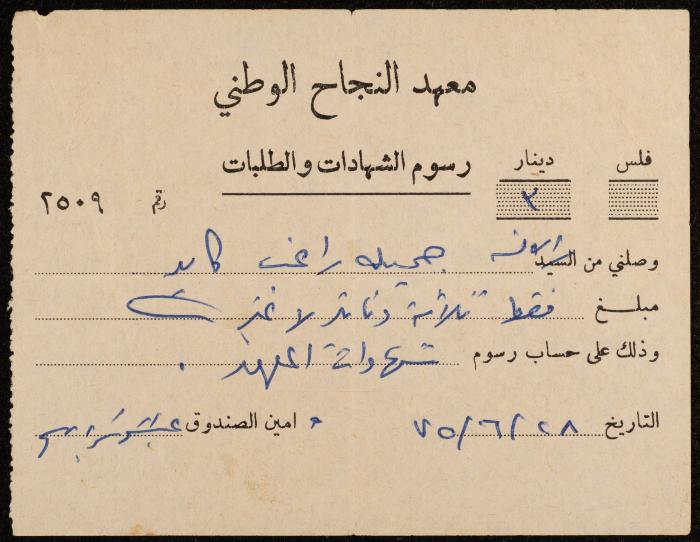 معهد النجاح الوطني
رسوم الشهادات والطلبات
دينار فلس
٣
رقم ٢٥٠٩
وصلني من السيد الآنسه جميله راغب كايد
مبلغ فقط ثلاثة دنانير لا غير
وذلك على حساب رسوم شهادات المعهد .
التاريخ ٧٥/٦/٢٨ امين الصندوق